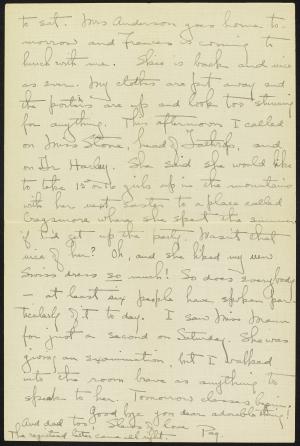 to eat. Mrs Anderson goes home to-
morrow and Frances is coming to
lunch with me. She is back and nice
as ever. My clothes are put away and
the portiers are up and look too stunning
for anything. This afternoon I called
on Miss Stone, head of Lathrop, and
on Dr. Harley. She said she would like
to take 15 or 16 girls up in the mountains
with her next Easter to a place called
Cragsmore where she spent the summer
if I'd get up the party. Wasn't that
nice of her? Oh, and she liked my new
Swiss dress so much! So does everybody
— at least six people have spoken par-
ticularly of it to day. I saw Miss
for just a second on Saturday. She was
giving an examination, but I walked
into the room brave as anything to
speak to her. Tomorrow classes begin.
Good bye you dear adorable thing!
And dad too. Heaps of love Peg.
The registered letter came all right.